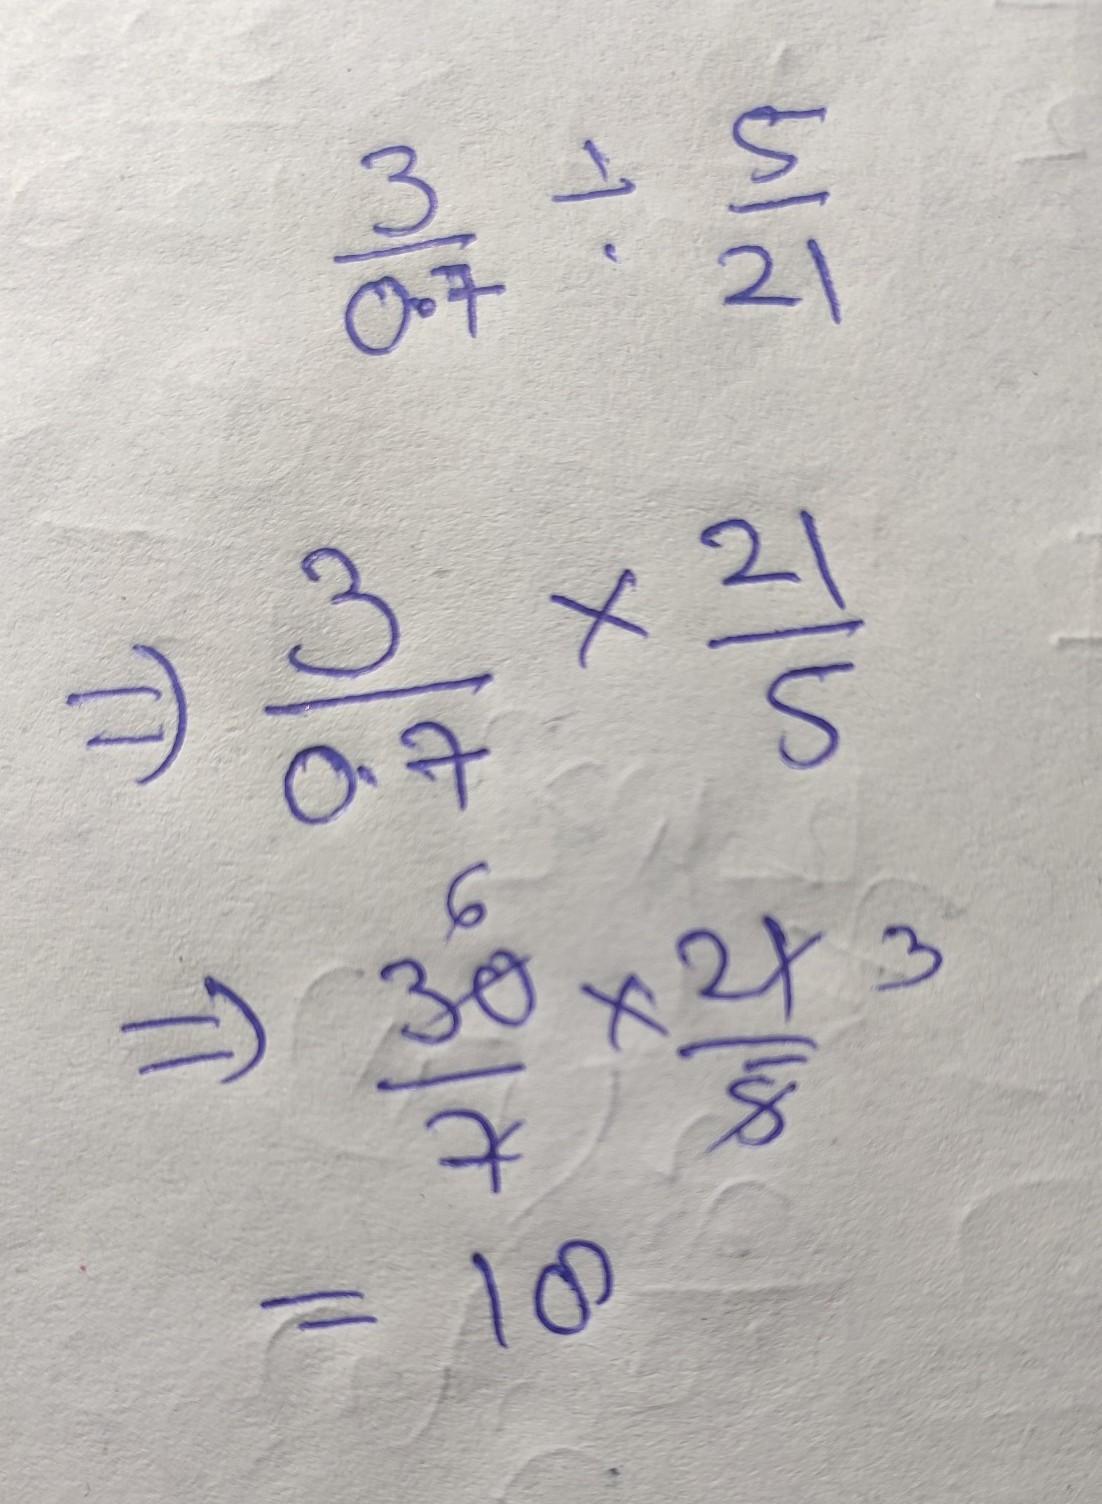 3/0.7 ÷ 5/21
⇒ 3/0.7 × 21/5
⇒ 30/7 × 21/5 6 3
= 18